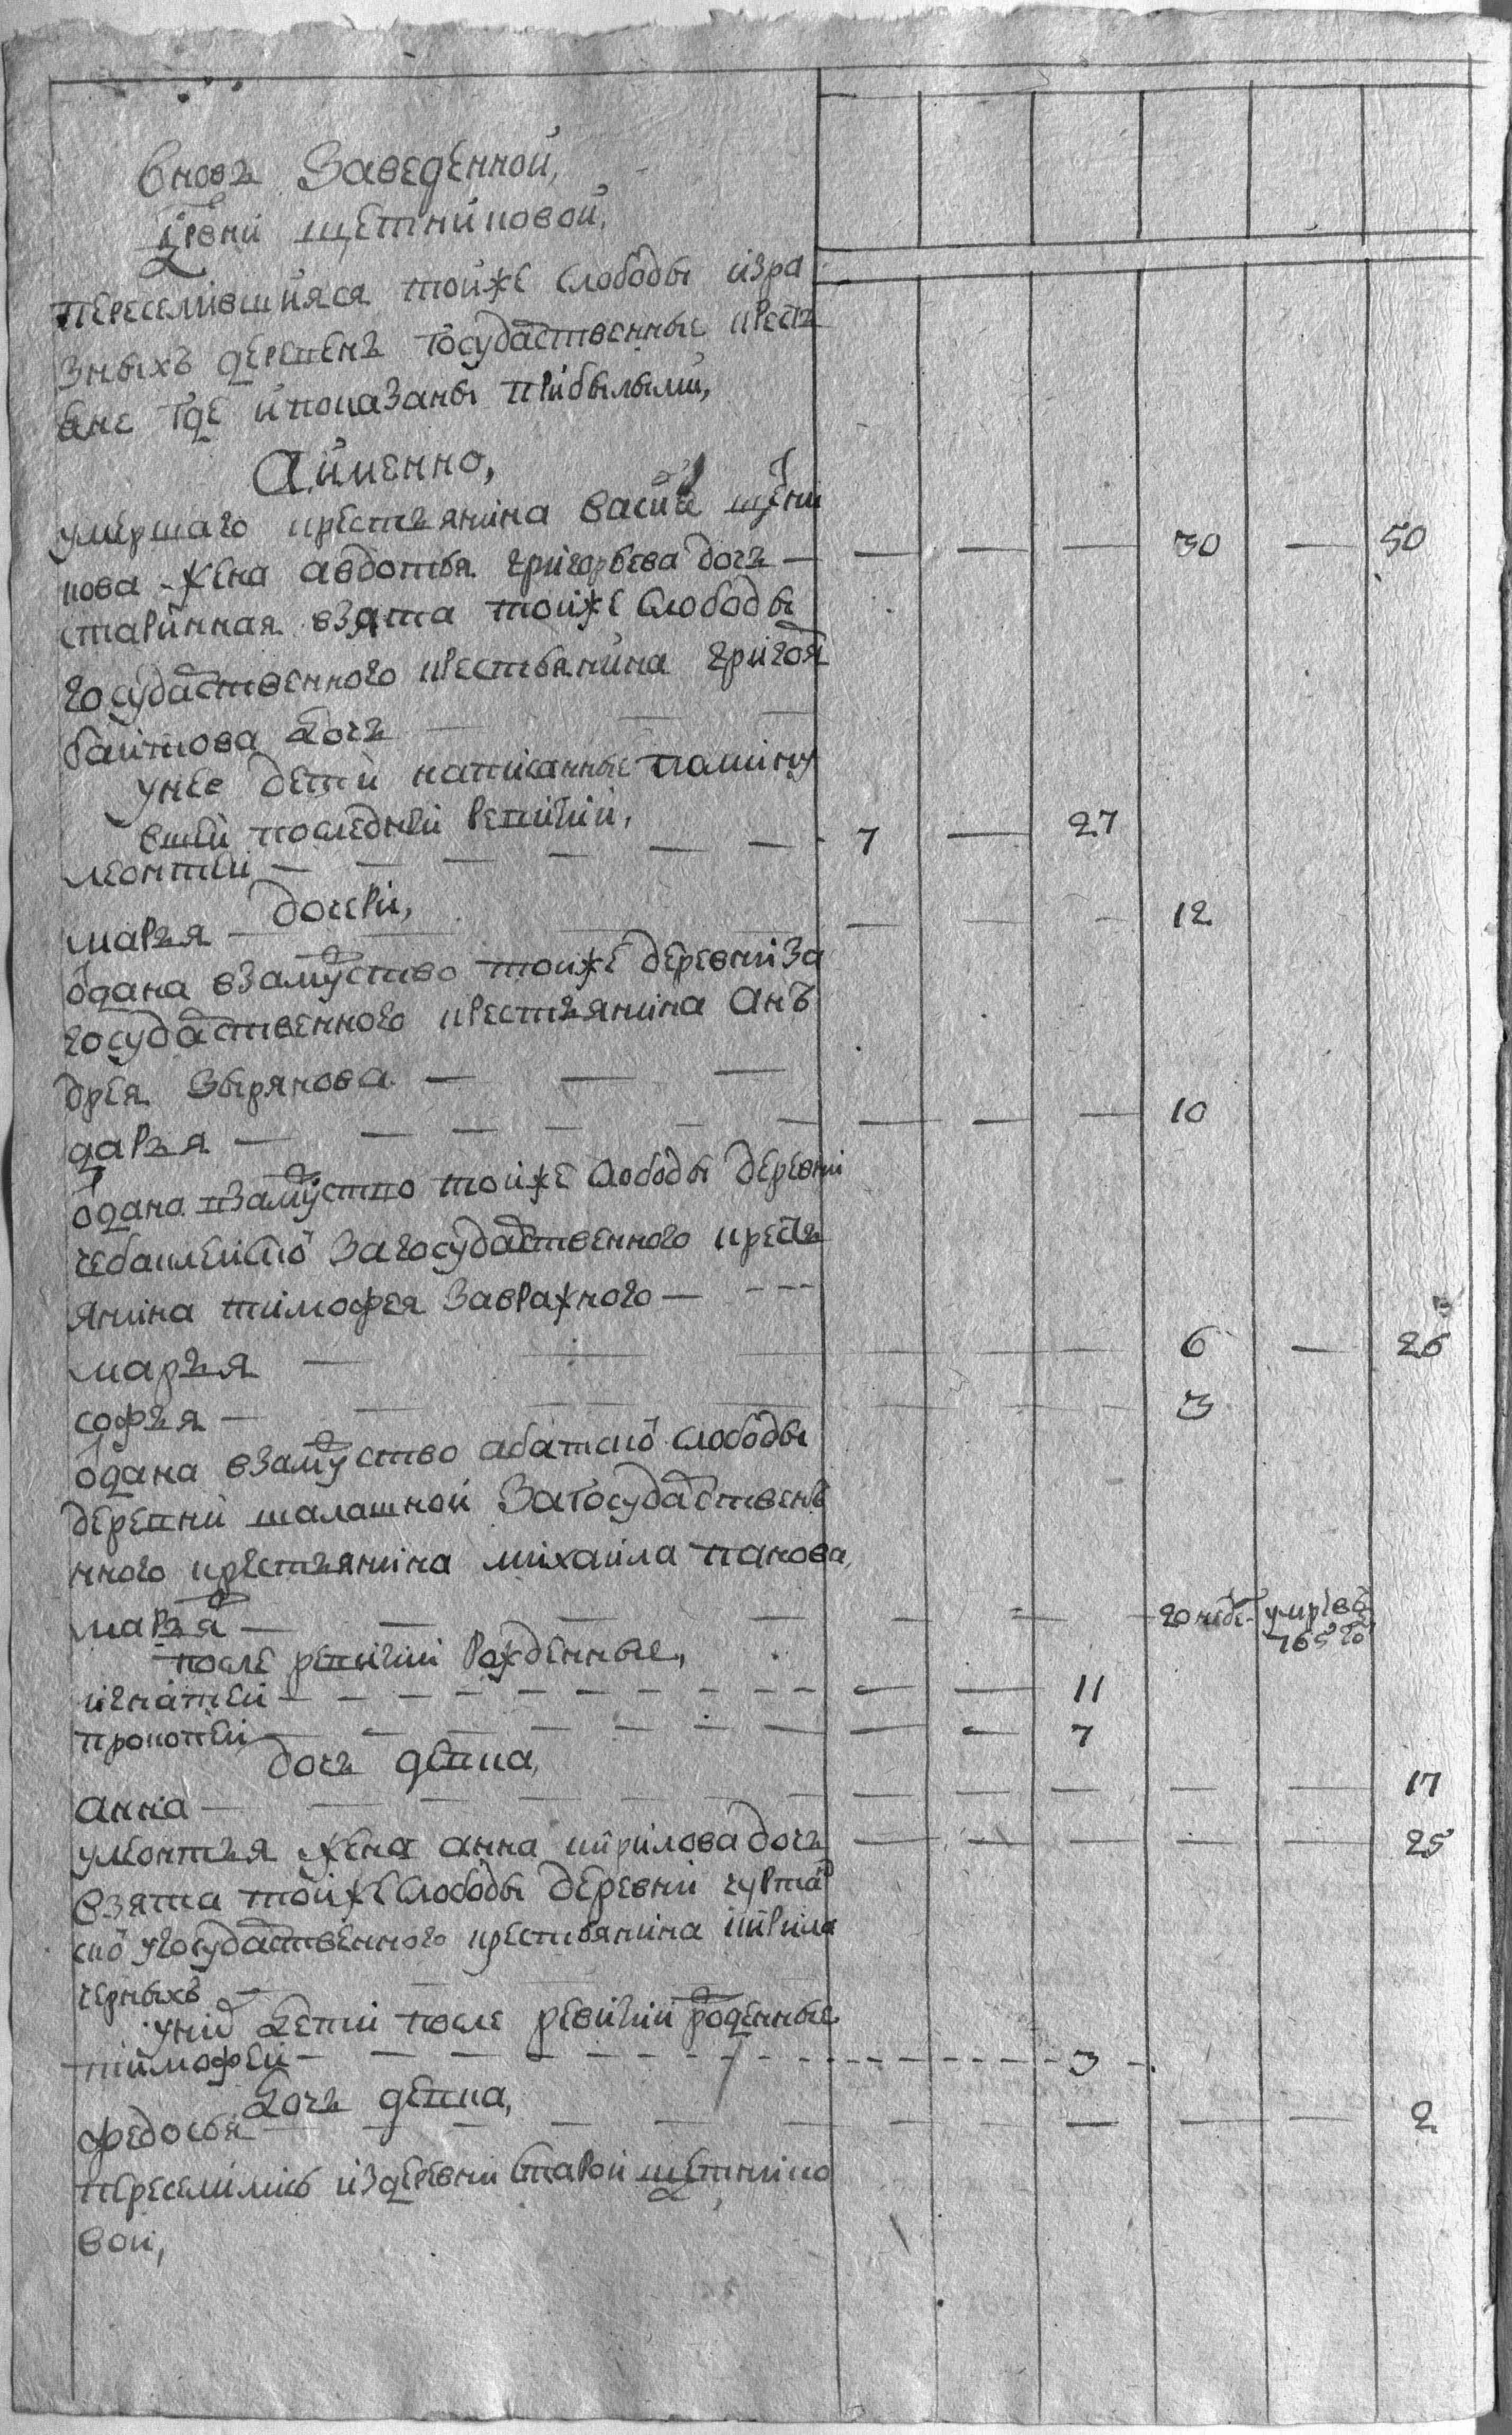 вновь Заведенной,
дрвни щетниковой,
переселившияся тойже слободы изра
зныхъ деревень государственные кресть
яне где ипоказаны прибылыми,
Аименно,
умершаго крестьянина васил щетни
кова жена авдотья григорьева дочь — — — — 30 — 50
старинная взята тойже слободы
государственного крестьянина григоря
баитова дочь — — —
унее дети написанные помину
вшей последней ревизии,
леонтей — — — — — — 7 — 27
дочери,
марья — — — — — — — 12
одана взамуство тойже деревни за
государственного крестьянина анъ
дрея Зырянова — — —
дарья — — — — — — — — — 10
одана взамуство тойже слободы деревни
чебаклейско загосударственного кресть
янина тимофея Завражного — — — —
марья — — — — — — 6 — 26
софья — — — — — — 3
одана взамуство абатско слободы
деревни шалашной Загосударствень
нного крестьянина михаила панова
марья — — — — — — — 20 неде умре въ
765 го
после ревизии рожденные,
игнатей — — — — — — — — — — 11
прокопей — — — — — — — — — 7
дочь девка,
анна — — — — — — — — — — — 17
улеонтья жена анна кирилова дочь — — — — — 25
взята тойже слободы деревни чуртан
ско угосударственного крестьянина кирила
черныхъ —
уних дети после ревизии роженные
тимофей — — — — — — 3 —
дочь девка,
федосья — — — — — — — — — — 2
переселились издеревни старой щетнико
вой,